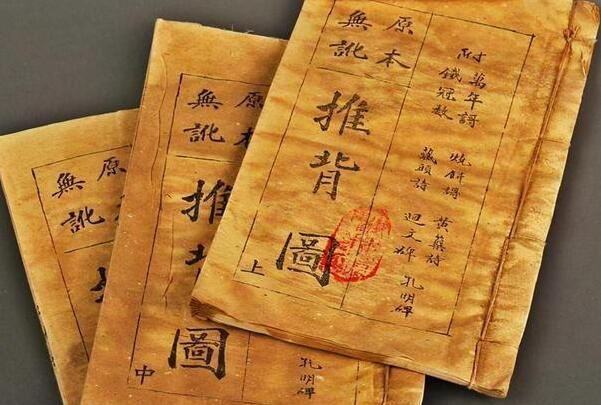 附
萬年謌
鐵冠數
燒餅謌
藏頭詩
黃蘗詩
迴文碑
孔明碑
原本
無訛
推背圖
上
孔明碑
原本
無訛
推
圖
中
原本
無訛